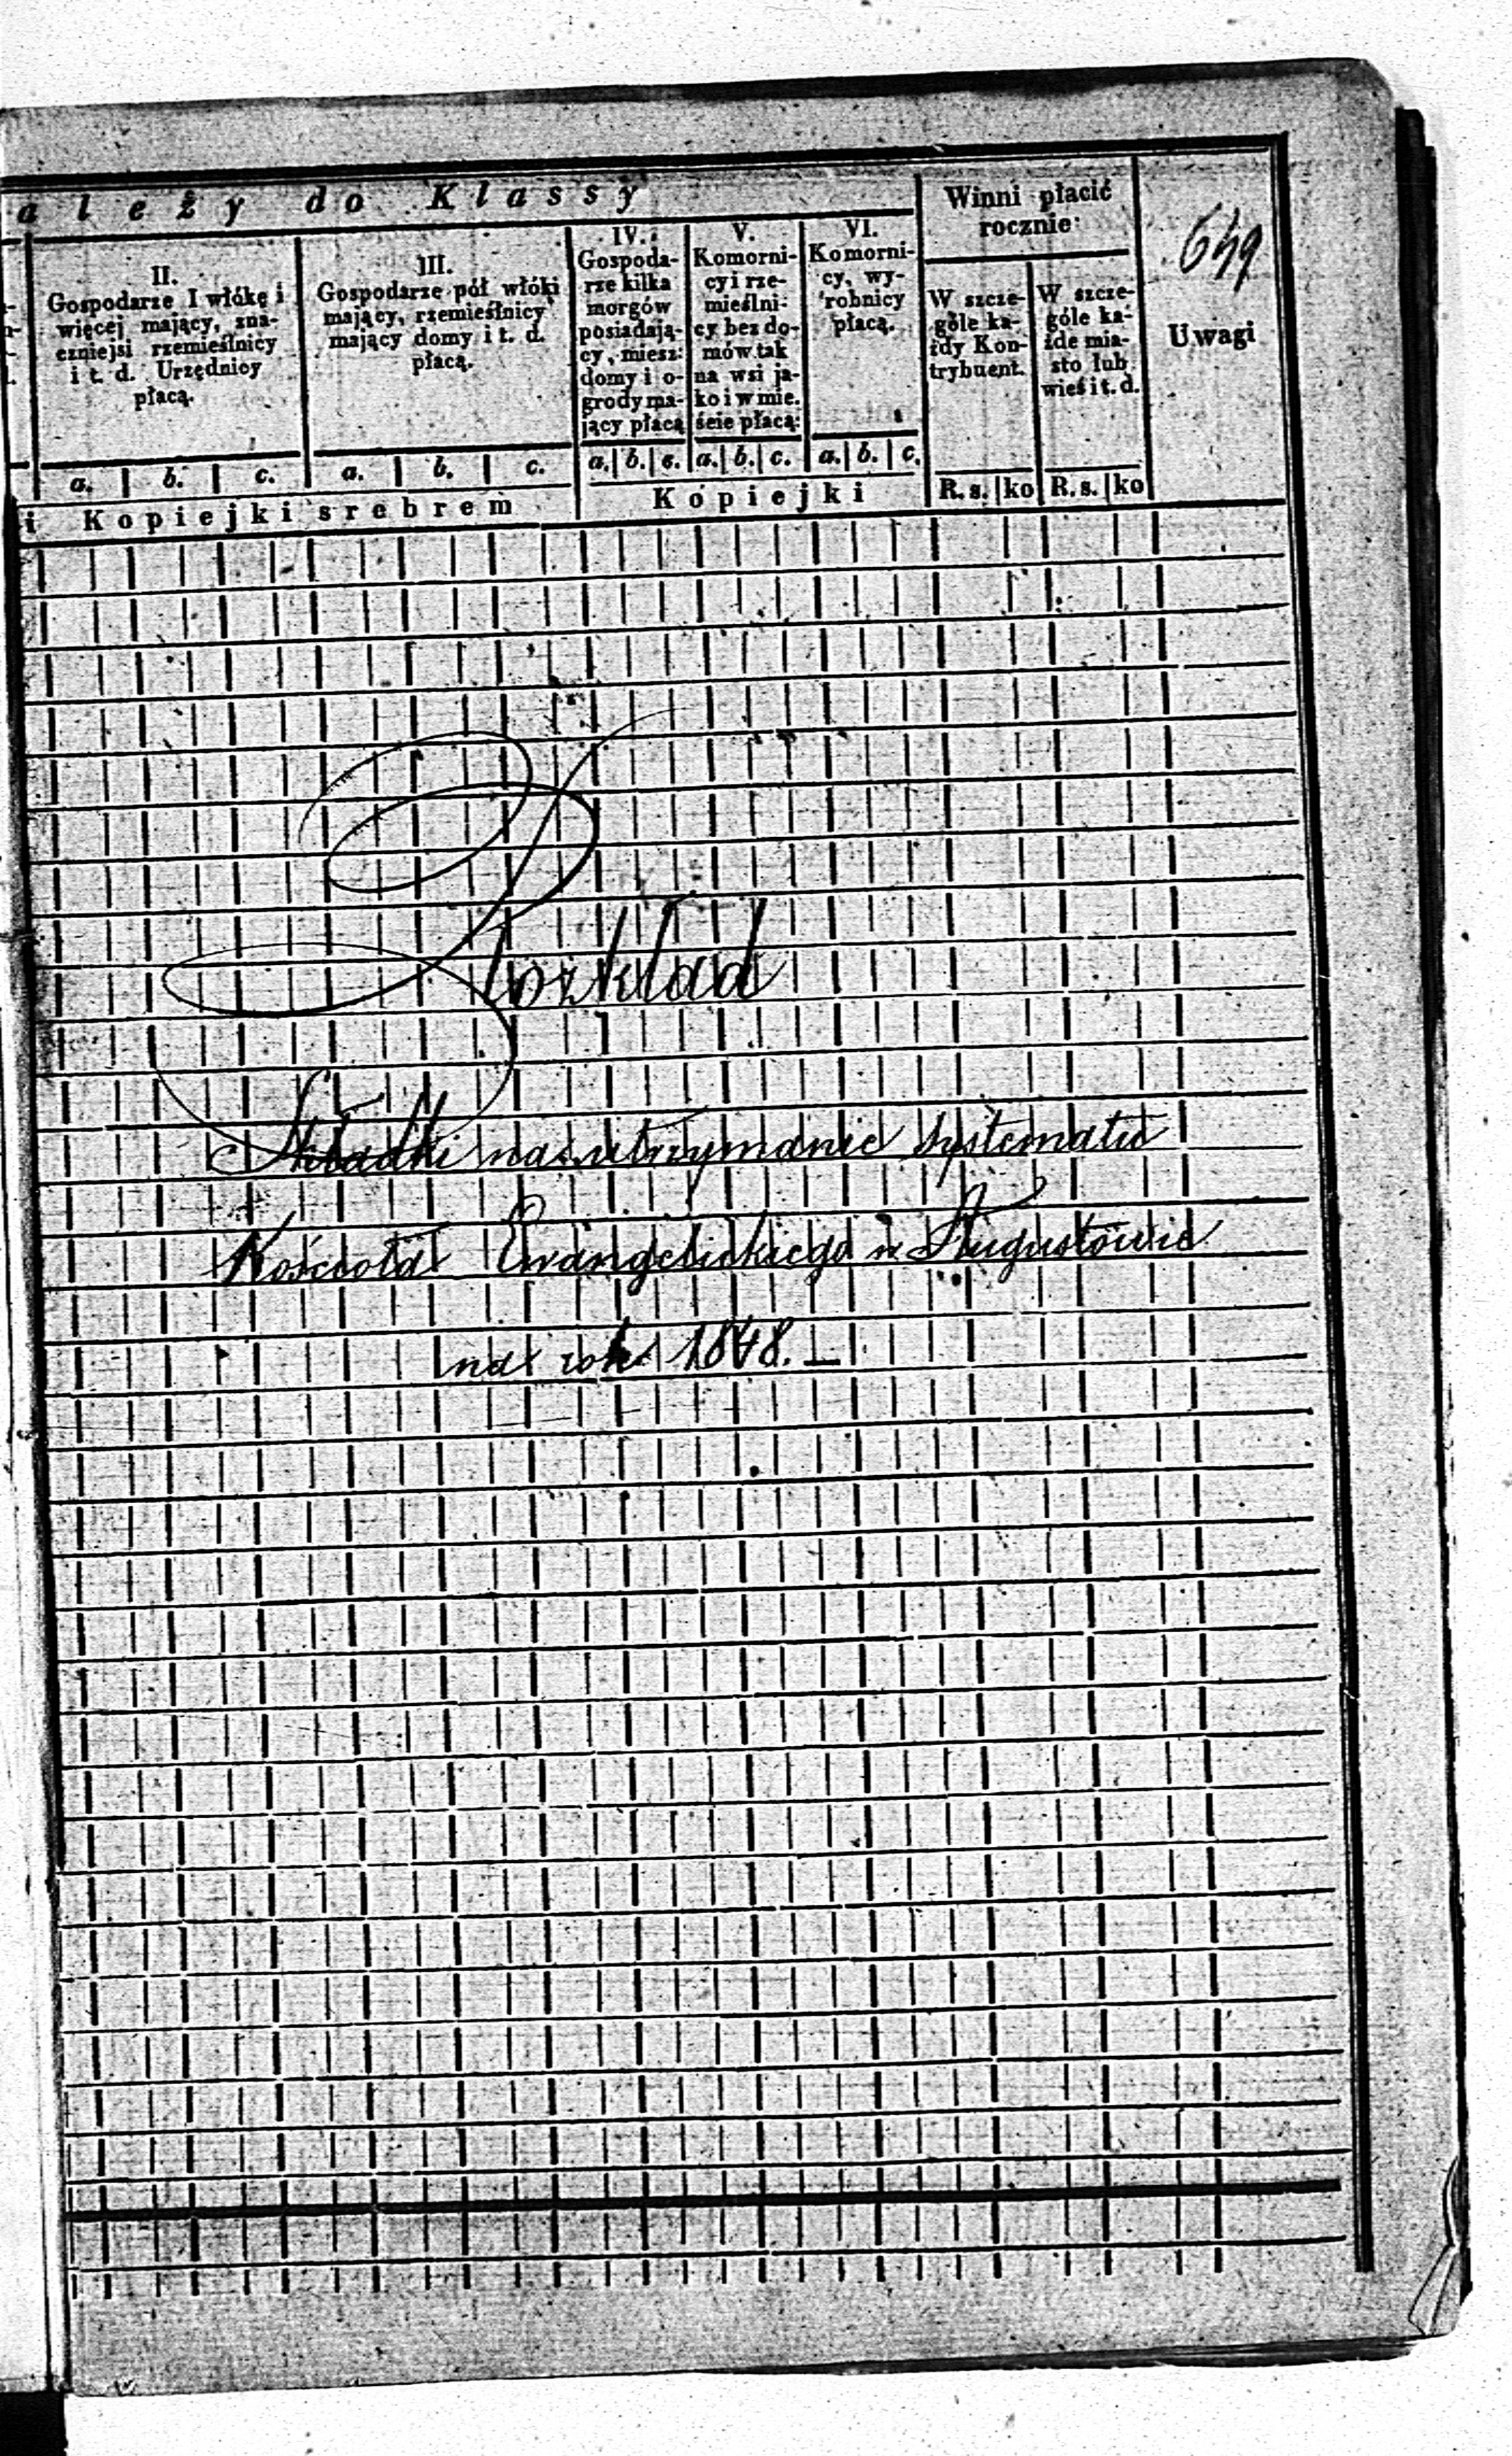 ależy do Klassy
Winni płacić
rocznie
649
II.
Gospodarze I włókę i
więcej mający, zna-
czniejsi rzemieślnicy
i t. d. Urzędnicy
płacą.
III.
Gospodarze pół włóki
mający, rzemieślnicy
mający domy i t. d.
płacą.
IV.
Gospoda-
rze kilka
morgów
posiadają-
cy, miesz:
domy i o-
grody ma-
jący płacą
V.
Komorni-
cy i rze-
mieślni-
cy bez do-
mów tak
na wsi ja-
ko i w mie.
ście płacą:
VI.
Komorni-
cy, wy-
robnicy
płacą.
W szcze-
góle ka-
żdy Kon-
trybuent.
W szcze-
góle ka-
żde mia-
sto lub
wieś i t. d.
Uwagi
a. b. c. a. b. c. a. b. c. a. b. c. a. b. c.
R. s. ko R. s. ko
i Kopiejki srebrem Kopiejki
Rozkład
Składki na utrzymanie systematu
Kościoła Ewangelickiego w Augustowie
na rok 1848.